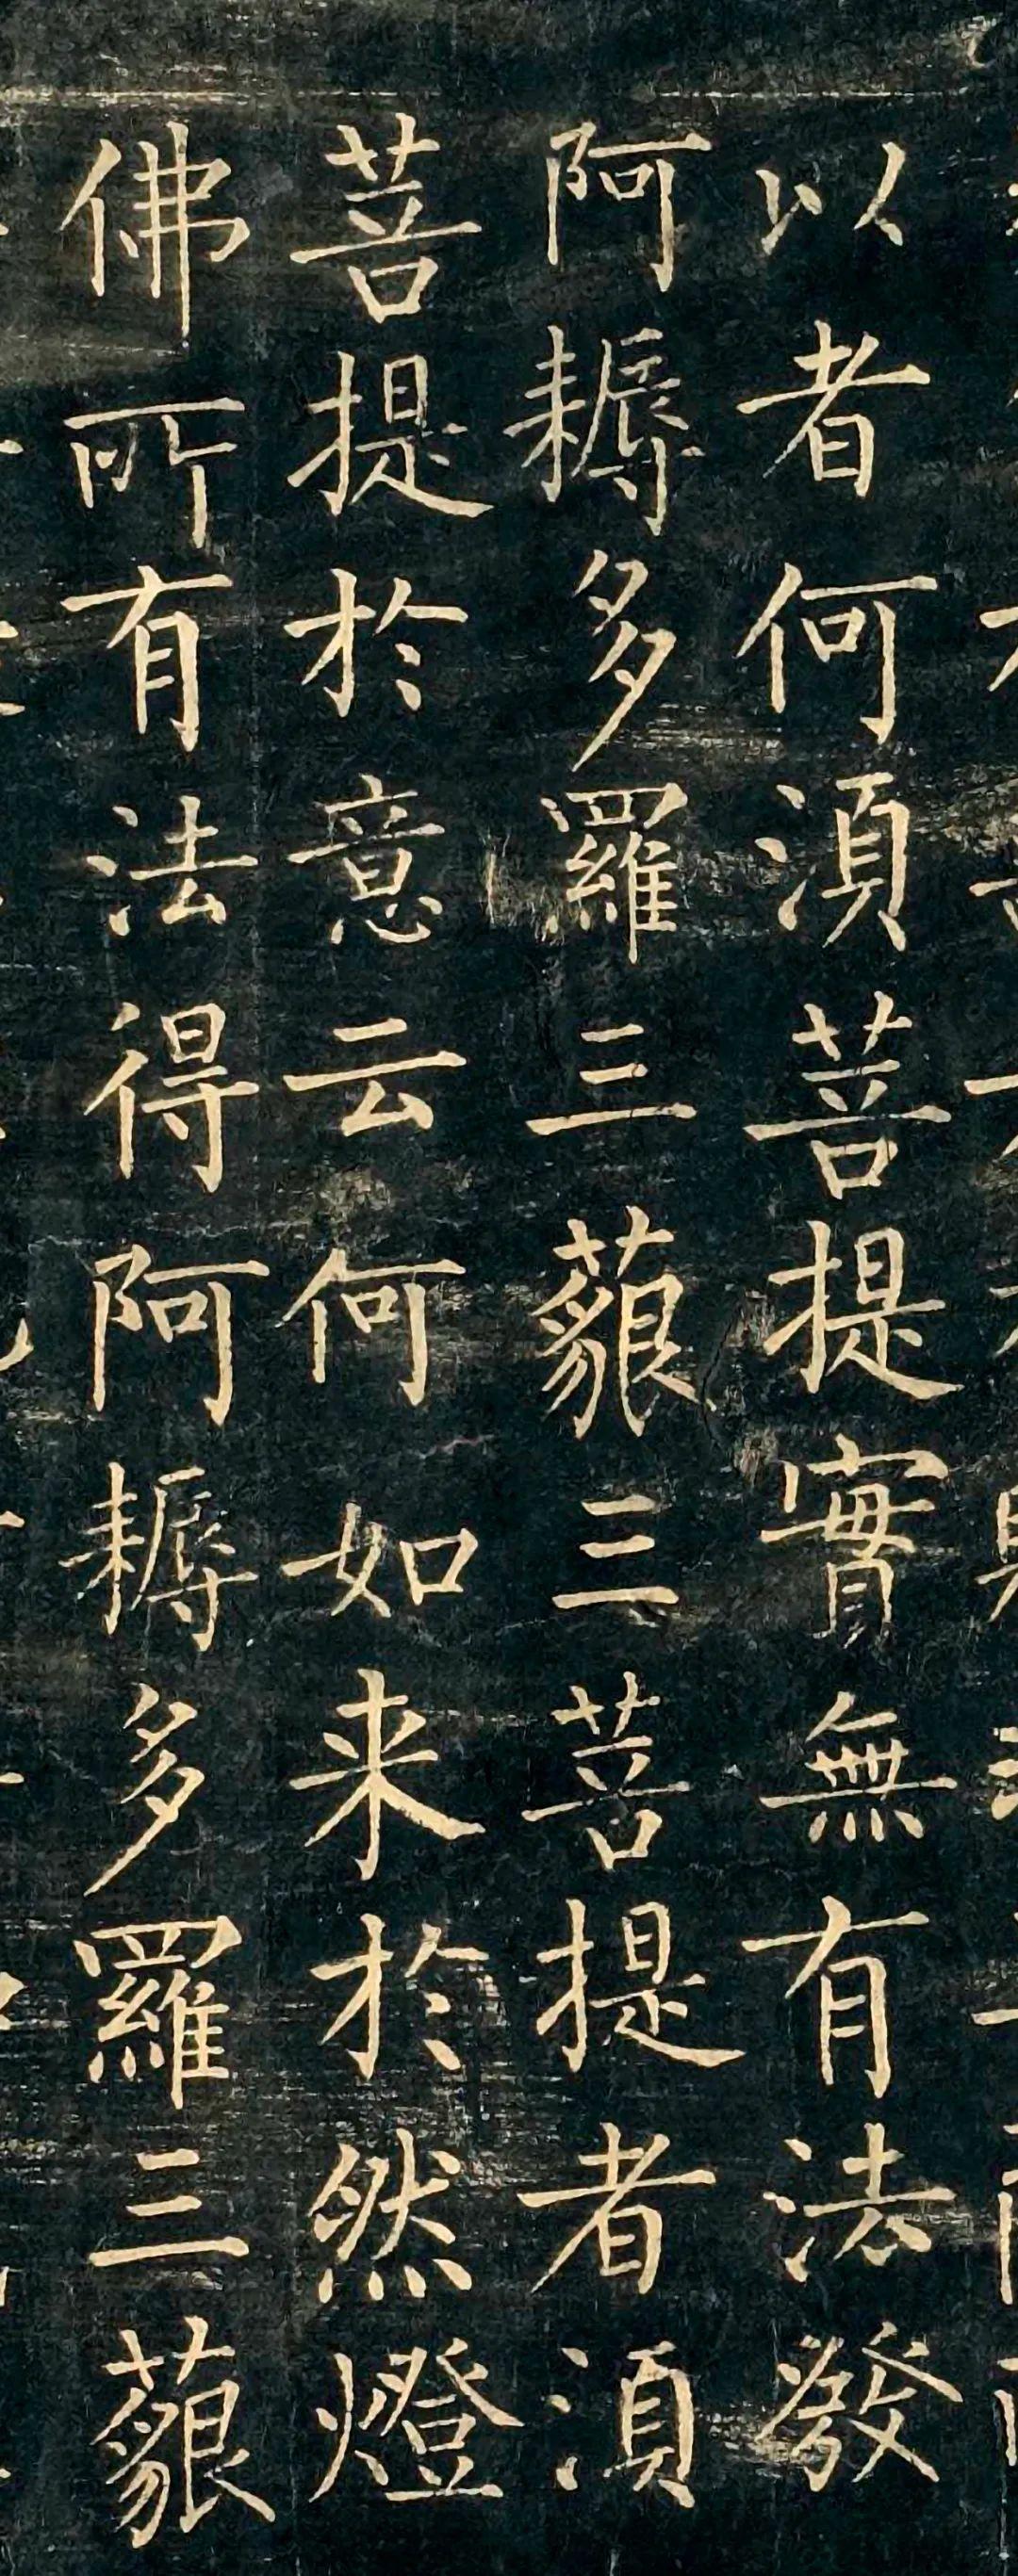 以者何湏菩提實無有法發
阿耨多羅三藐三菩提者湏
菩提於意云何如来於然燈
佛所有法得阿耨多羅三藐